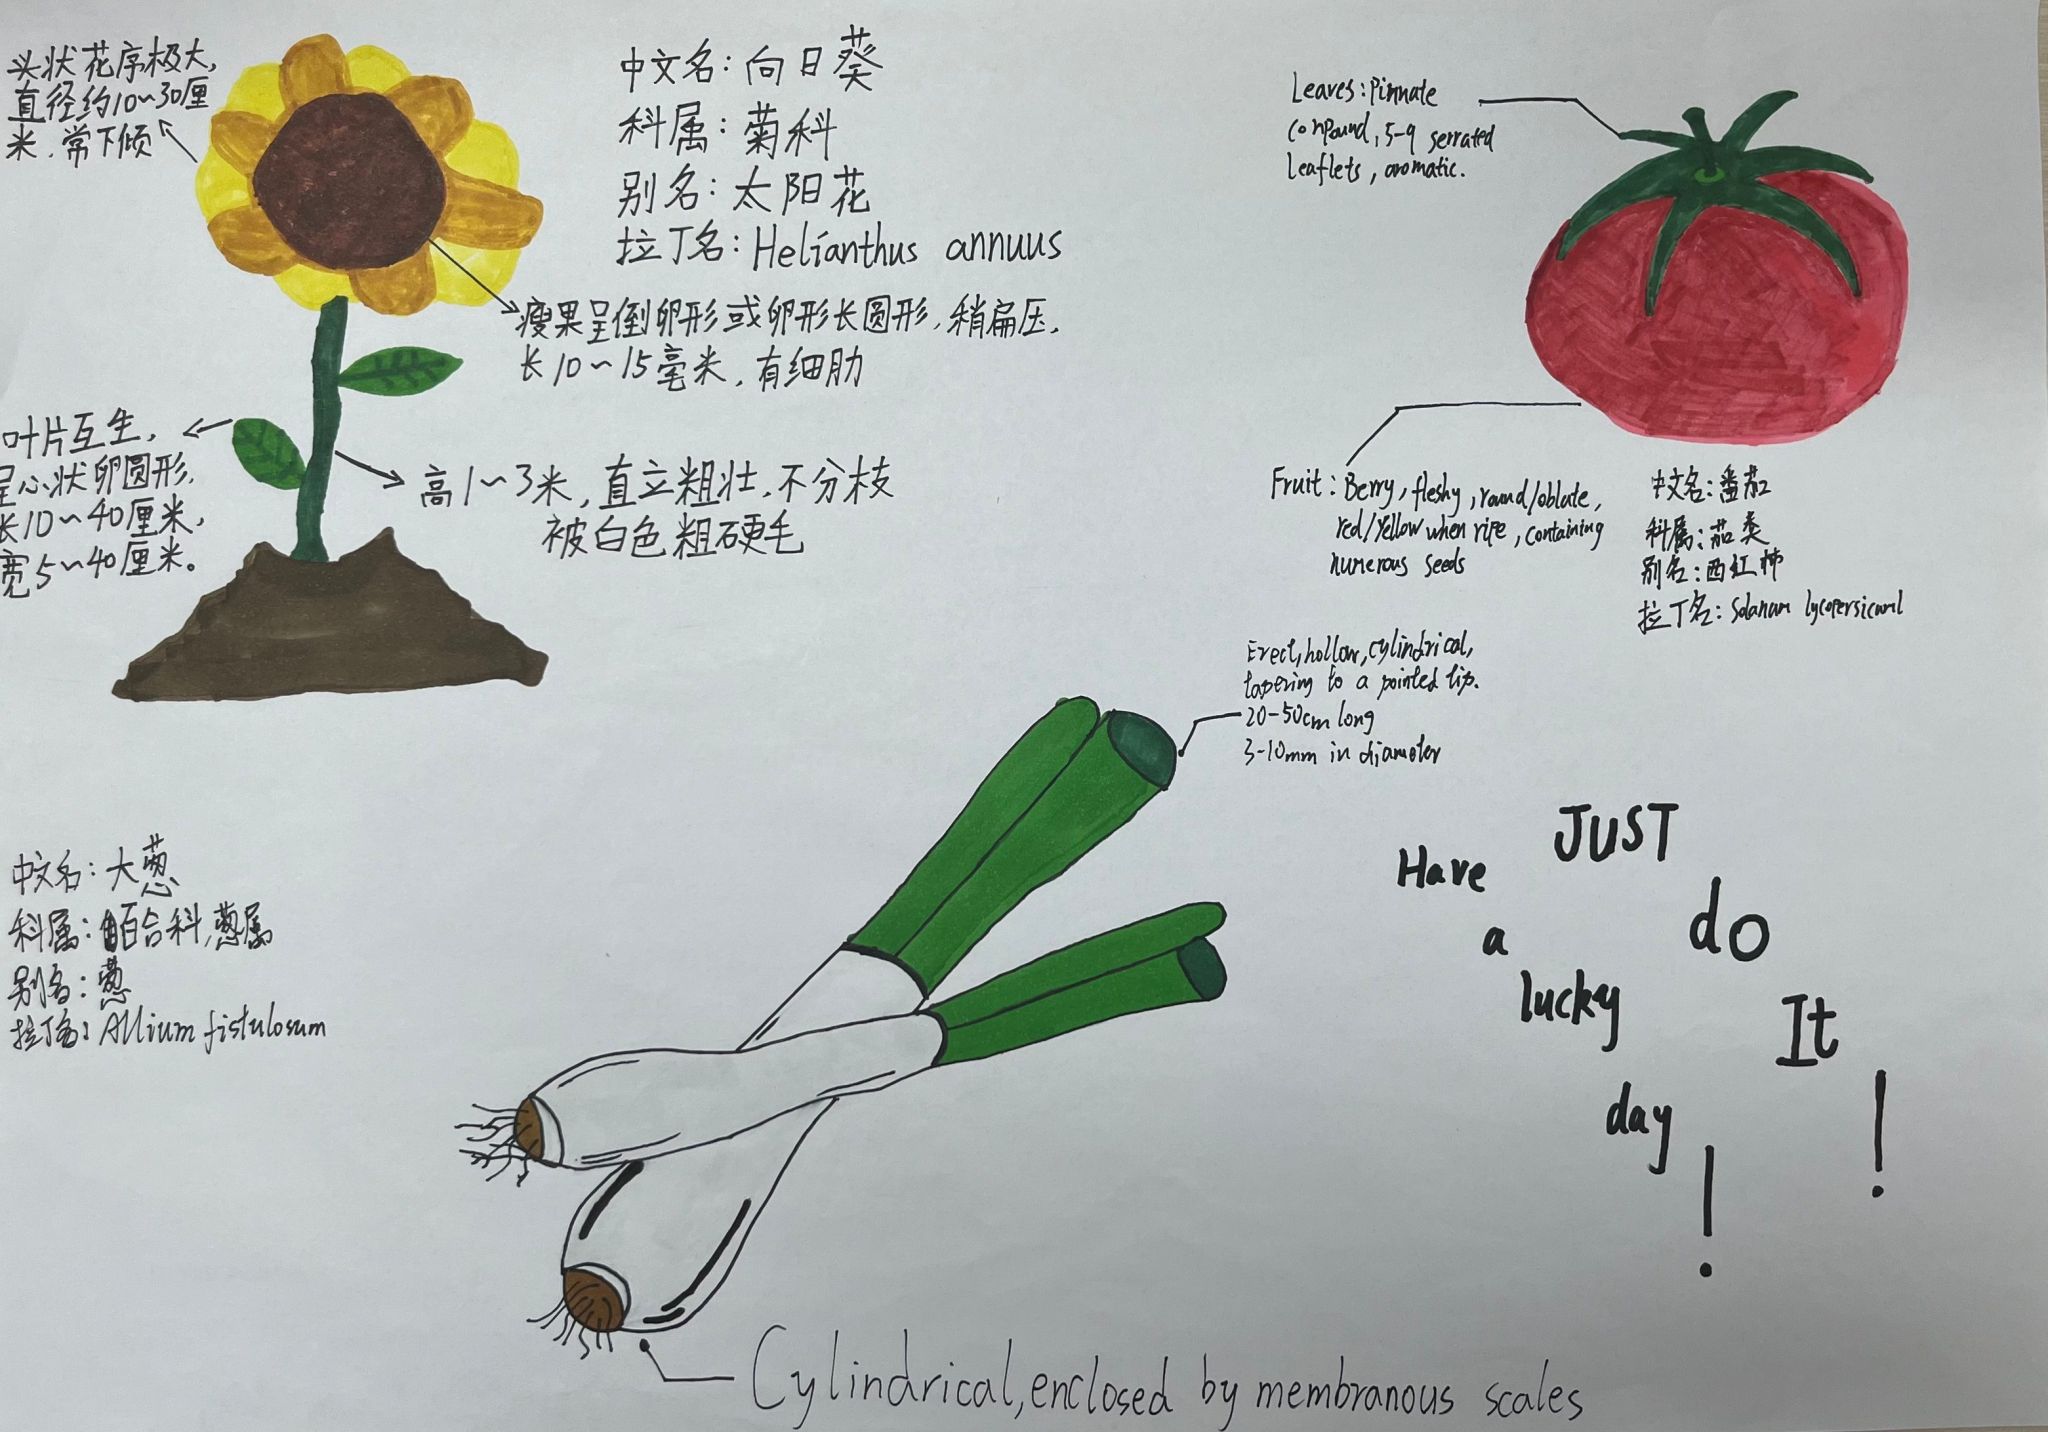 头状花序极大,
直径约10~30厘
米,常下倾
中文名:向日葵
科属:菊科
别名:太阳花
拉丁名:Helianthus annuus
瘦果呈倒卵形或卵形长圆形,稍扁压,
长10~15毫米,有细肋
叶片互生,
呈心状卵圆形,
长10~40厘米,
宽5~40厘米。
高1~3米,直立粗壮,不分枝
被白色粗硬毛
Leaves: Pinnate
compound, 5-9 serrated
leaflets, aromatic.
Fruit: Berry, fleshy, round/oblate,
red/Yellow when ripe, containing
numerous seeds
中文名:番茄
科属:茄类
别名:西红柿
拉丁名: Solanum lycopersicum
Erect, hollow, cylindrical,
tapering to a pointed tip.
20-50cm long
3-10mm in diameter
中文名:大葱
科属:百合科,葱属
别名:葱
拉丁名: Allium fistulosum
Cylindrical, enclosed by membranous scales
Have
a
lucky
day
!
JUST
do
It
!